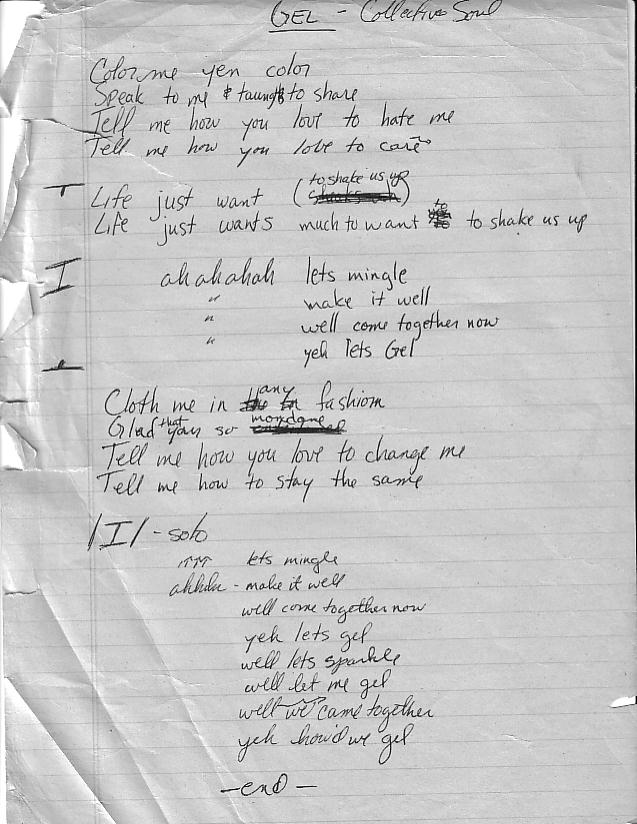 GEL - Collective Soul
Color me yen color
Speak to me & taunt to share
Tell me how you love to hate me
Tell me how you love to care
Life just want (to shake us up)
Life just wants much to want to to shake us up
I
ah ah ah ah lets mingle
" make it well
" well come together now
" yeh lets Gel
Cloth me in any fashion
Glad that you so mondane
Tell me how you love to change me
Tell me how to stay the same
/I/ - solo
lets mingle
ahhhh - make it well
well come together now
yeh lets gel
well lets sparkle
well let me gel
well we came together
yeh how'd we gel
- end -